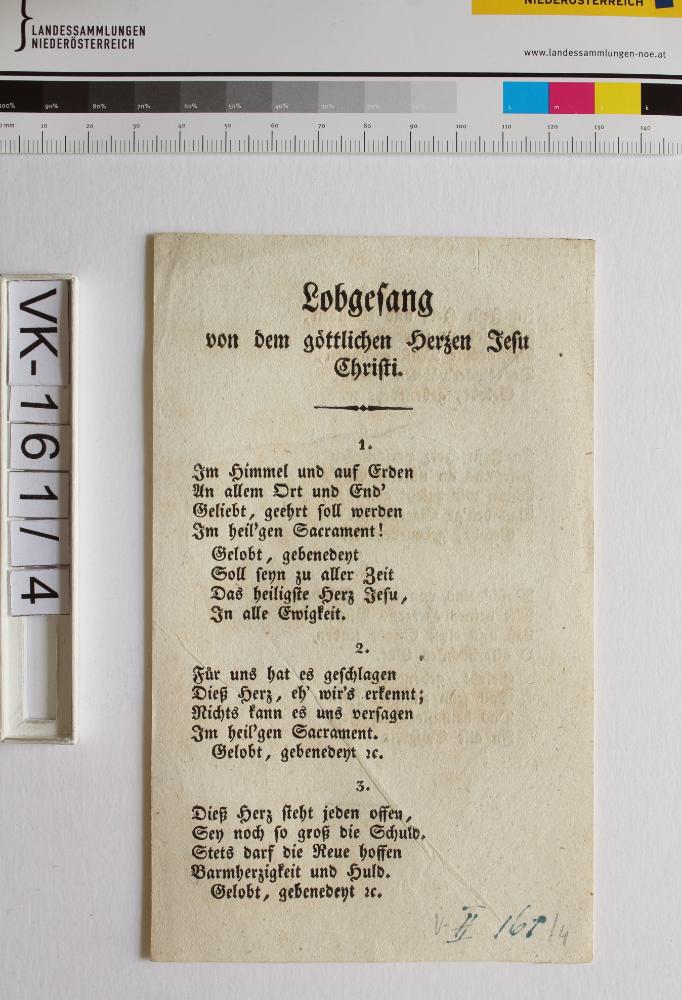 LANDESSAMMLUNGEN
NIEDERÖSTERREICH
NIEDERÖSTERREICH
www.landessammlungen-noe.at
100% 90% 80% 70% 60% 50% 40% 30% 20% 10% c m y k
0 mm 10 20 30 40 50 60 70 80 90 100 110 120 130 140
VK-161/4
Lobgesang
von dem göttlichen Herzen Jesu
Christi.
1.
Im Himmel und auf Erden
An allem Ort und End'
Geliebt, geehrt soll werden
Im heil'gen Sacrament!
Gelobt, gebenedeyt
Soll seyn zu aller Zeit
Das heiligste Herz Jesu,
In alle Ewigkeit.
2.
Für uns hat es geschlagen
Dieß Herz, eh' wir's erkennt;
Nichts kann es uns versagen
Im heil'gen Sacrament.
Gelobt, gebenedeyt ꝛc.
3.
Dieß Herz steht jeden offen,
Sey noch so groß die Schuld.
Stets darf die Reue hoffen
Barmherzigkeit und Huld.
Gelobt, gebenedeyt ꝛc.
V-II 161/4